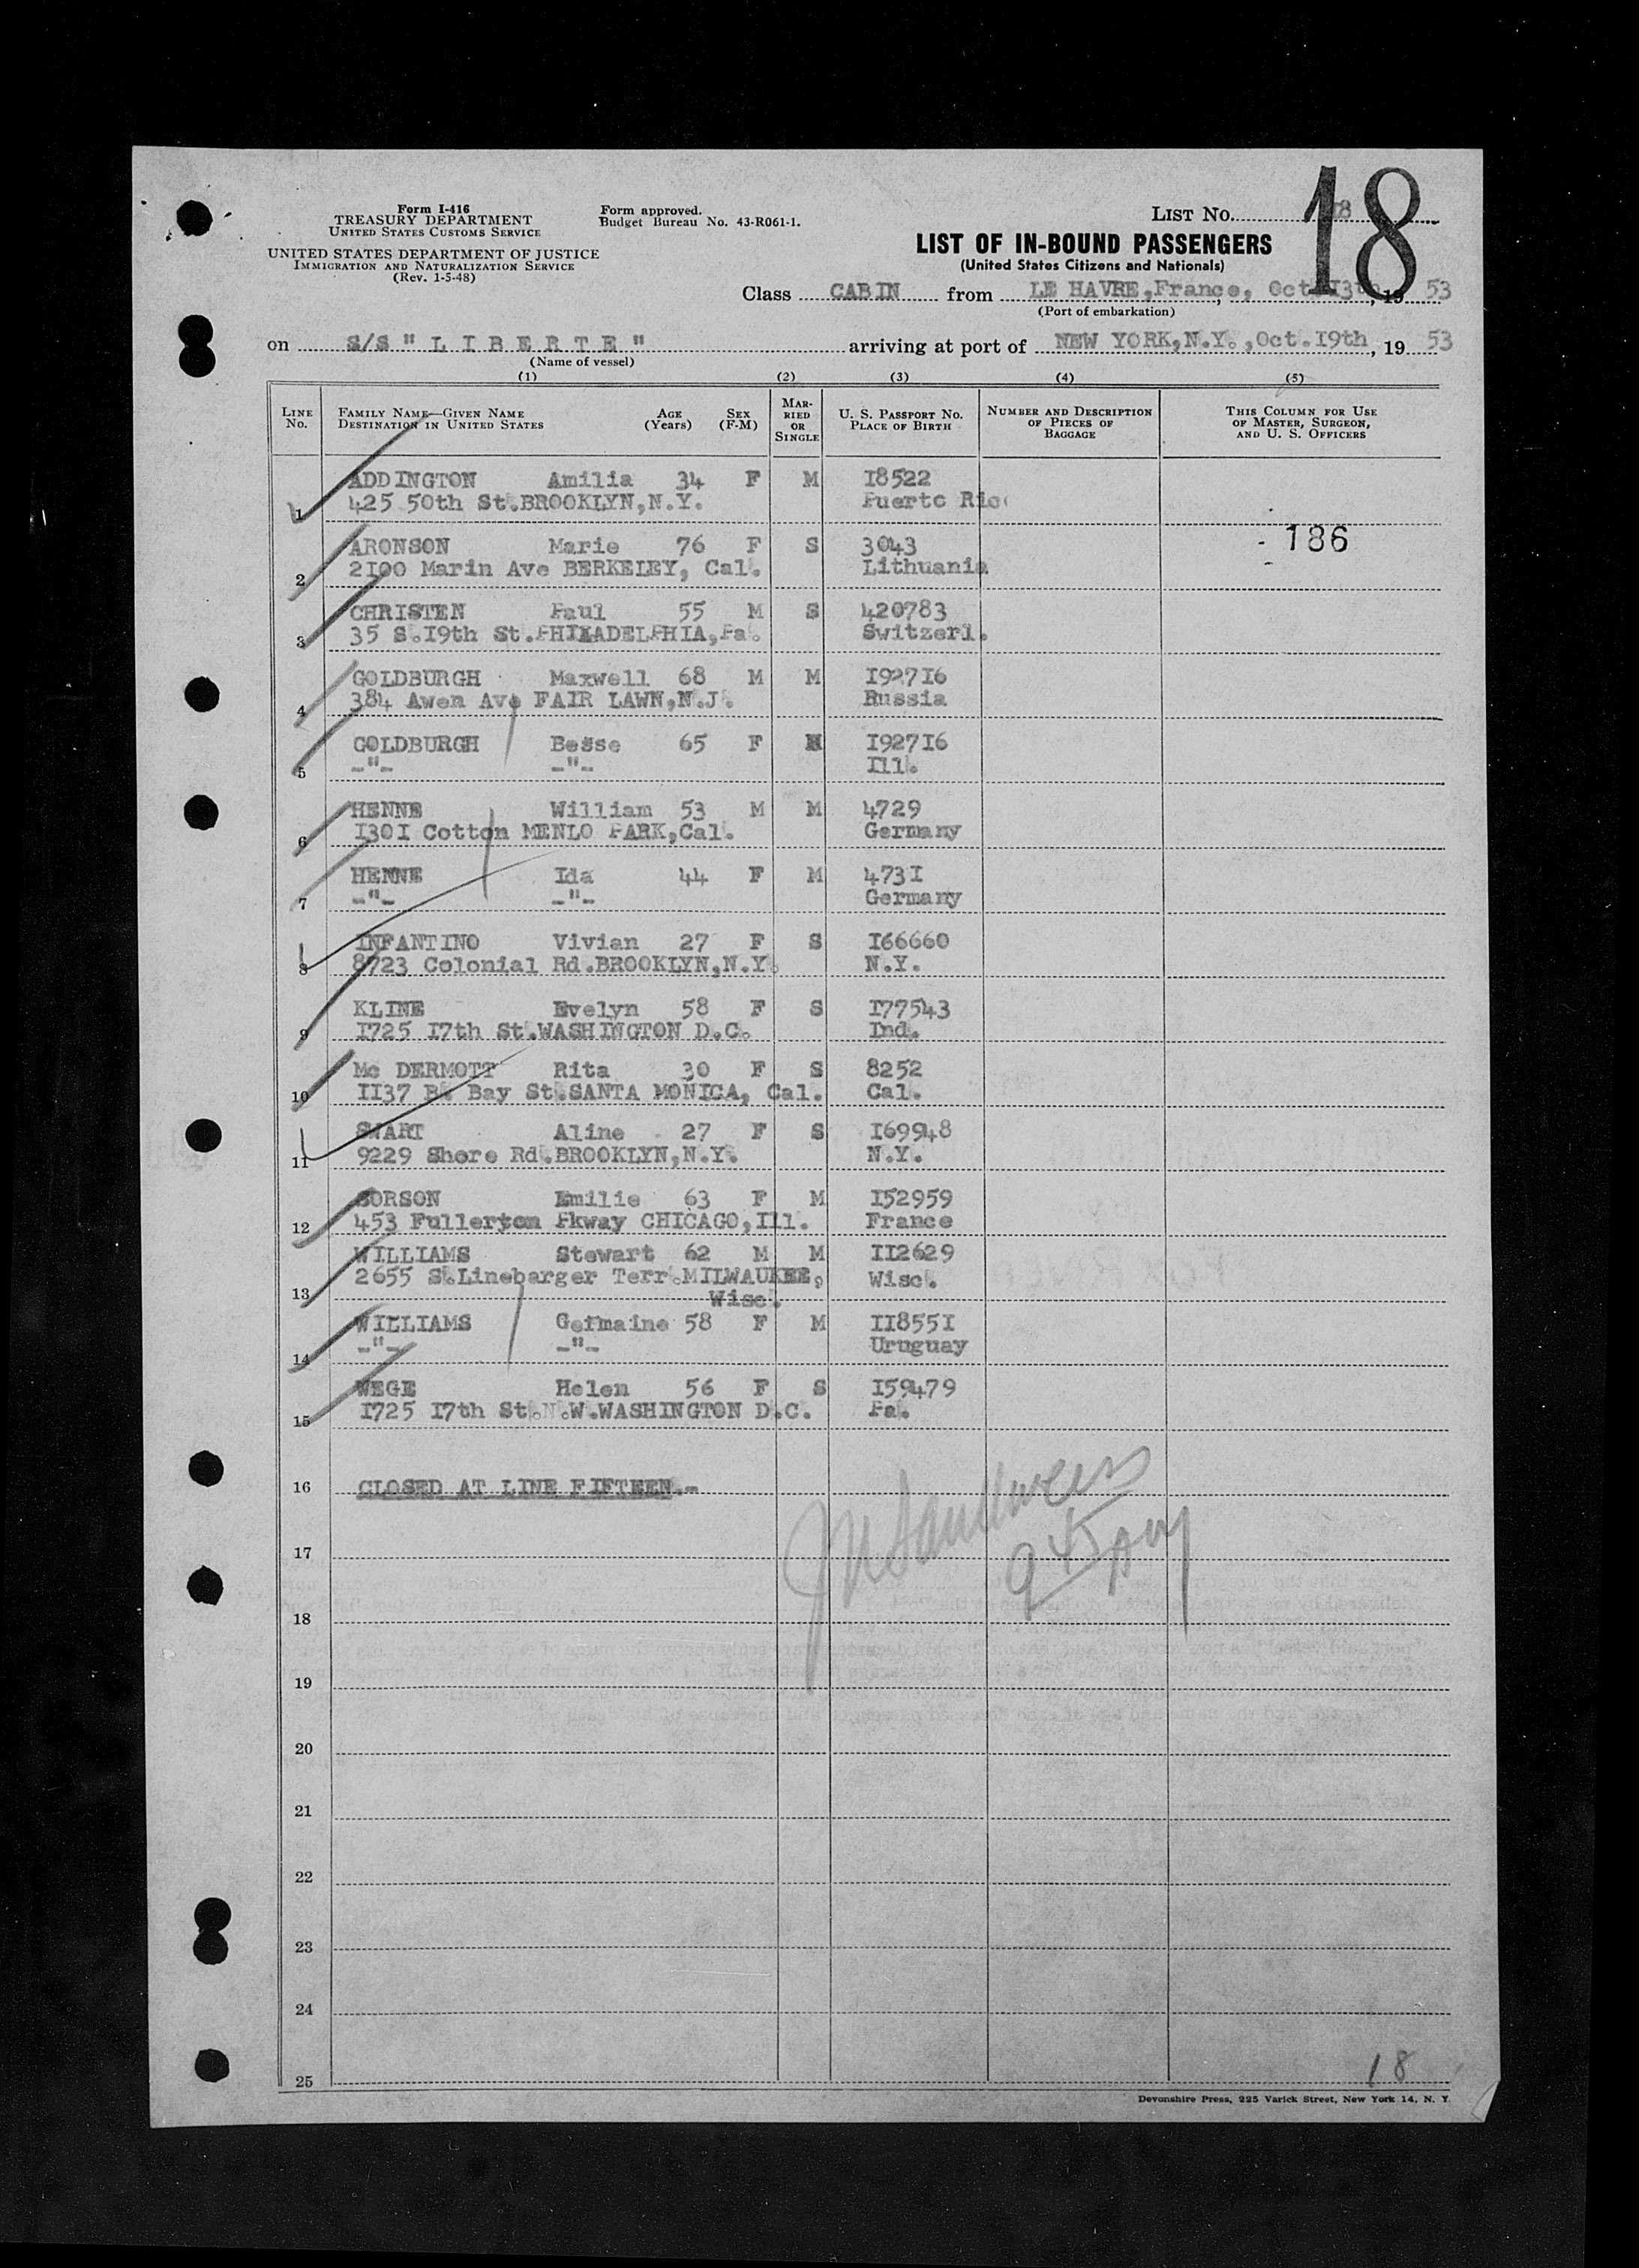 Form I-416
TREASURY DEPARTMENT
UNITED STATES CUSTOMS SERVICE
UNITED STATES DEPARTMENT OF JUSTICE
IMMIGRATION AND NATURALIZATION SERVICE
(Rev. 1-5-48)
Form approved.
Budget Bureau No. 43-R061-1.
LIST No. 18
18
LIST OF IN-BOUND PASSENGERS
(United States Citizens and Nationals)
Class CABIN from LE HAVRE, France, Oct. I3th, 19 53
(Port of embarkation)
on S/S " L I B E R T E " arriving at port of NEW YORK, N.Y., Oct. I9th, 19 53
(Name of vessel)
(1) (2) (3) (4) (5)
LINE No. FAMILY NAME—GIVEN NAME DESTINATION IN UNITED STATES AGE (Years) SEX (F-M) MARRIED OR SINGLE U. S. PASSPORT No. PLACE OF BIRTH NUMBER AND DESCRIPTION OF PIECES OF BAGGAGE THIS COLUMN FOR USE OF MASTER, SURGEON, AND U. S. OFFICERS
ADDINGTON Amilia 34 F M I8522
1 425 50th St.BROOKLYN,N.Y. Puerto Rico
ARONSON Marie 76 F S 3043 186
2 2I00 Marin Ave BERKELEY, Cal. Lithuania
CHRISTEN Paul 55 M S 420783
3 35 S.I9th St.PHILADELPHIA,Pa. Switzerl.
GOLDBURGH Maxwell 68 M M I927I6
4 384 Awen Ave FAIR LAWN,N.J. Russia
GOLDBURGH Besse 65 F M I927I6
5 -"- -"- Ill.
HENNE William 53 M M 4729
6 I30I Cotton MENLO PARK,Cal. Germany
HENNE Ida 44 F M 473I
7 -"- -"- Germany
INFANTINO Vivian 27 F S I66660
8 8723 Colonial Rd.BROOKLYN,N.Y. N.Y.
KLINE Evelyn 58 F S I77543
9 I725 I7th St.WASHINGTON D.C. Ind.
Mc DERMOTT Rita 30 F S 8252
10 II37 Bay St.SANTA MONICA, Cal. Cal.
SWART Aline 27 F S I69948
11 9229 Shore Rd.BROOKLYN,N.Y. N.Y.
SORSON Emilie 63 F M I52959
12 453 Fullerton Pkway CHICAGO,Ill. France
WILLIAMS Stewart 62 M M II2629
2655 S.Linebarger Terr.MILWAUKEE, Wisc.
13 Wisc.
WILLIAMS Germaine 58 F M II855I
14 -"- -"- Uruguay
WEGE Helen 56 F S I59479
15 I725 I7th St.N.W.WASHINGTON D.C. Pa.
16 CLOSED AT LINE FIFTEEN.-
17
18
19
20
21
22
23
24
25
18
Devonshire Press, 225 Varick Street, New York 14, N. Y.